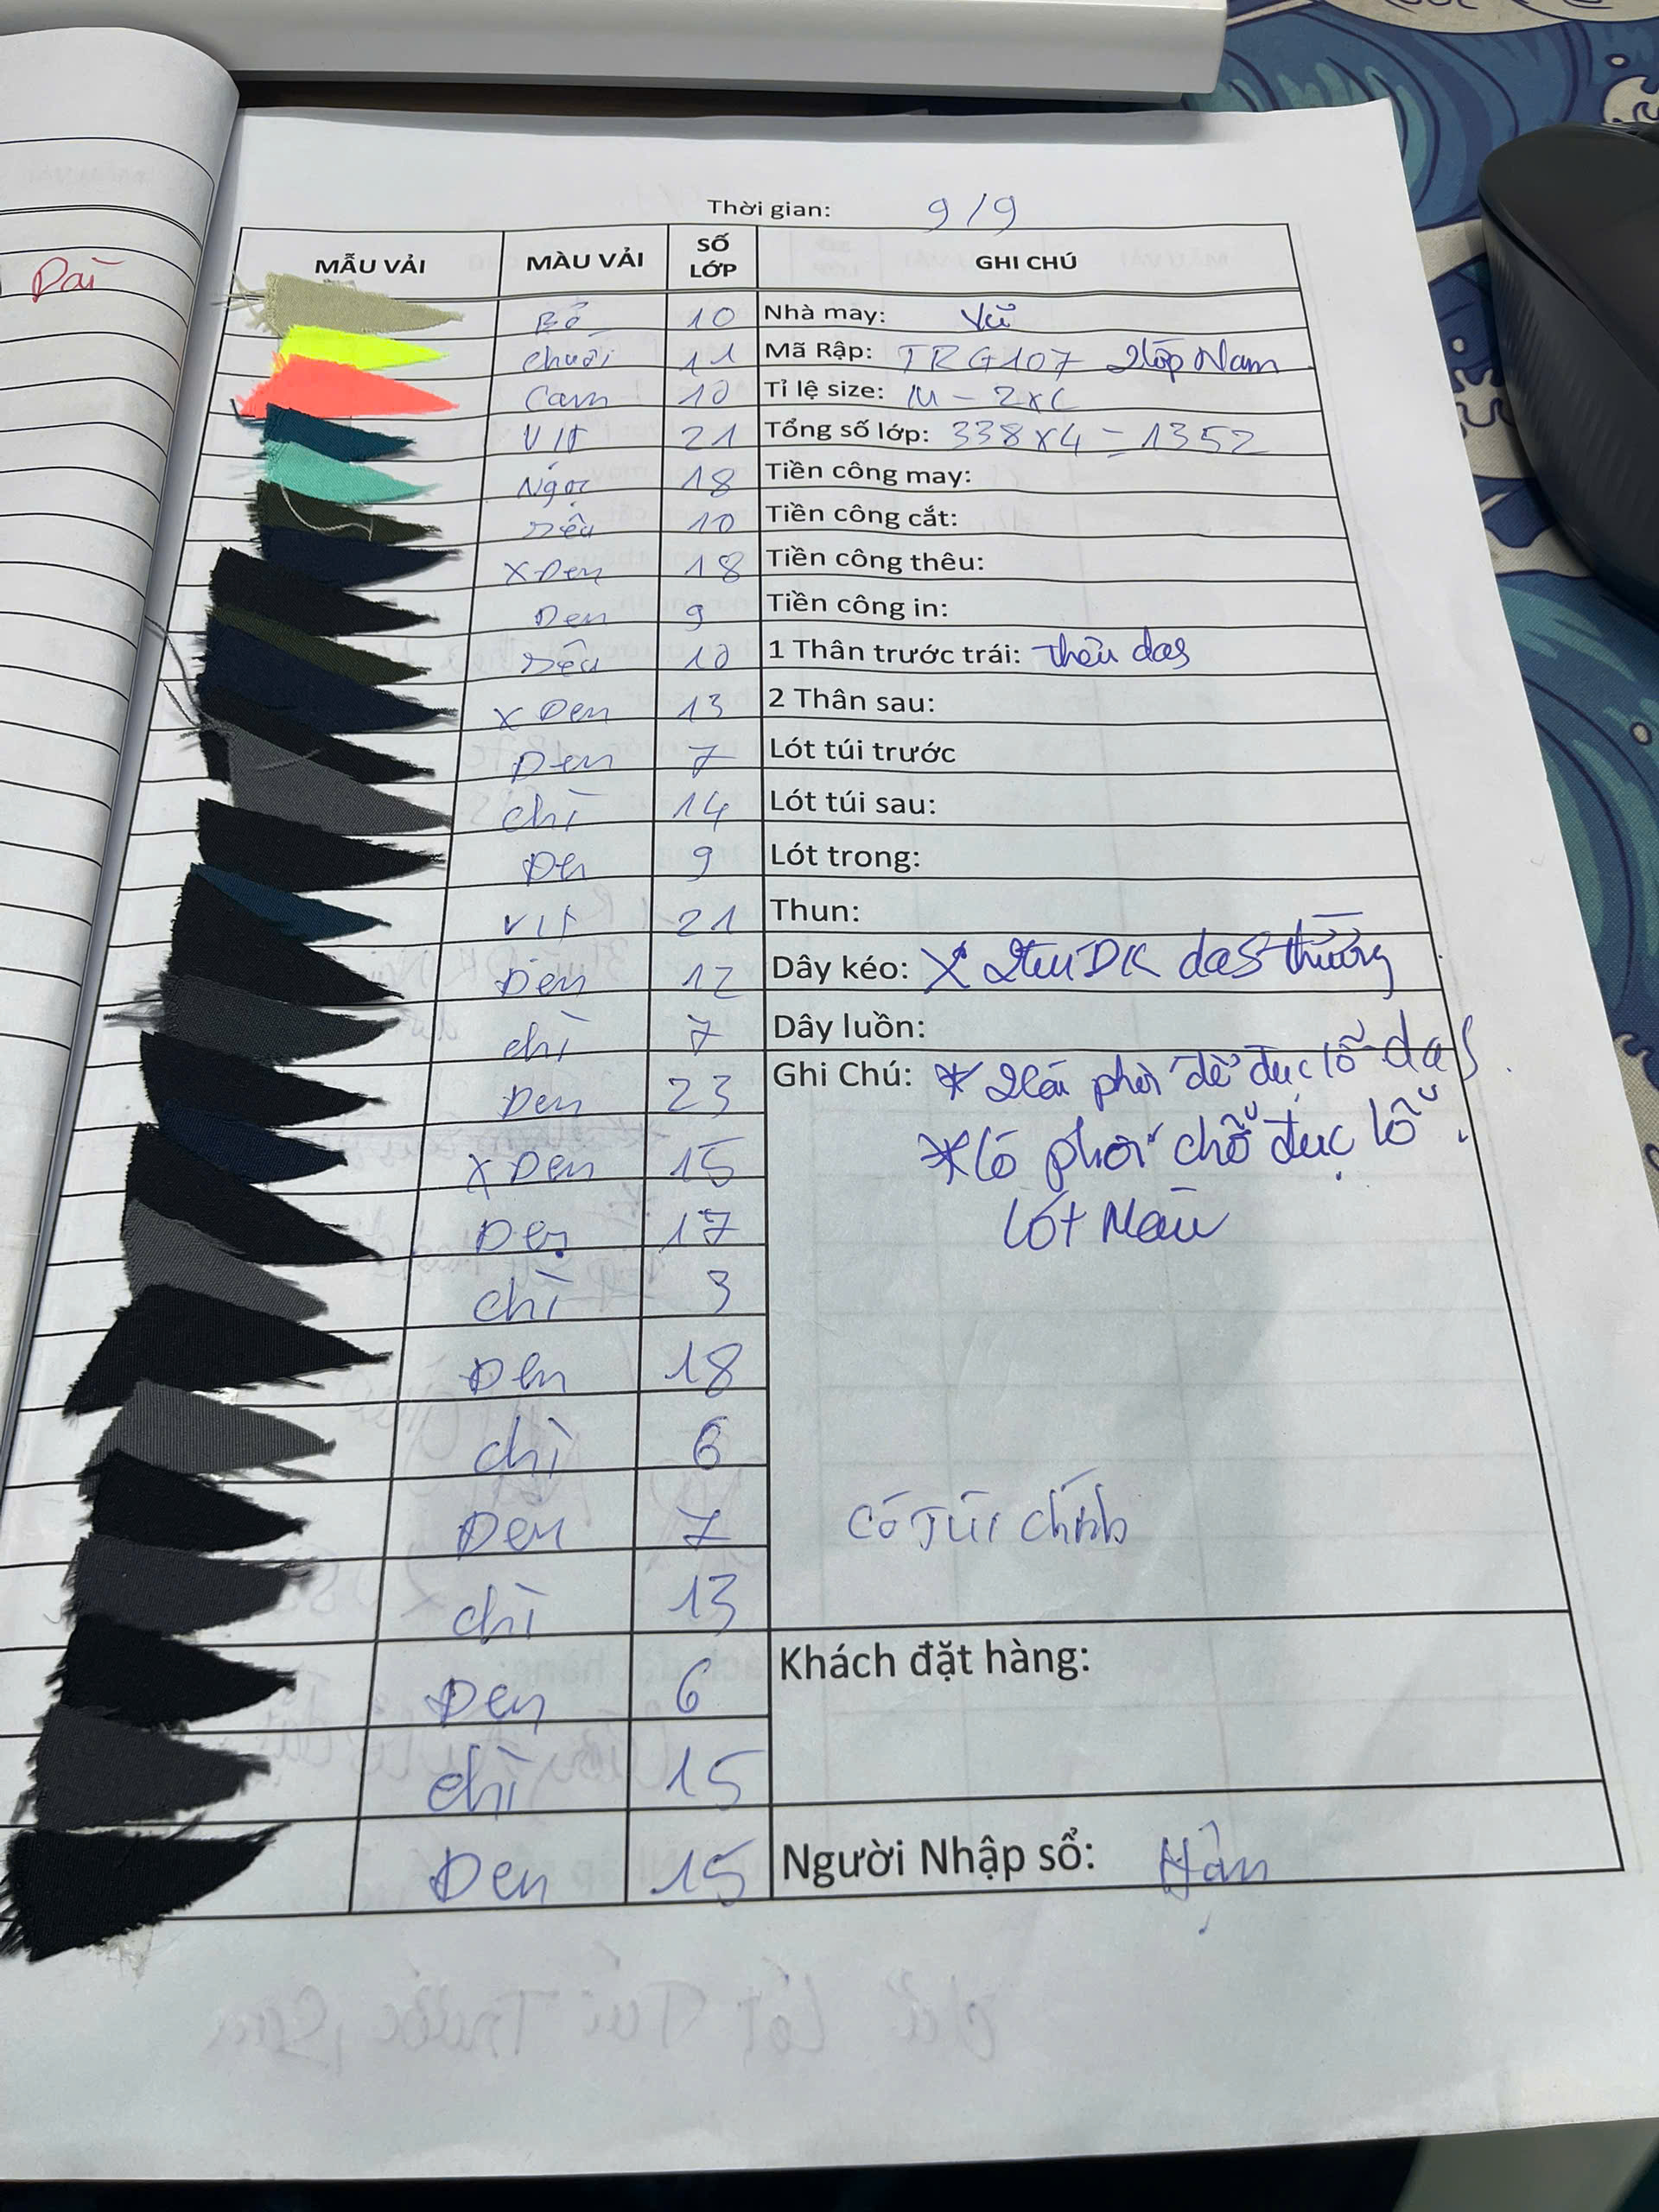 Dai
Thời gian: 9/9
MẪU VẢI MÀU VẢI SỐ LỚP GHI CHÚ
Bố 10 Nhà may: Vũ
Chuối 11 Mã Rập: TRG107 Nam
Cam 10 Tỉ lệ size: M - 2XL
Vịt 21 Tổng số lớp: 338x4 = 1352
Ngọc 18 Tiền công may:
Rêu 10 Tiền công cắt:
X Đen 18 Tiền công thêu:
Đen 9 Tiền công in:
Rêu 10 1 Thân trước trái: Thêu das
X Đen 13 2 Thân sau:
Đen 7 Lót túi trước
chì 14 Lót túi sau:
Đen 9 Lót trong:
Vịt 21 Thun:
Đen 12 Dây kéo: X DK das thường
chì 7 Dây luồn:
Đen 23 Ghi Chú: * phối để đục lỗ das
X Đen 15 * Có phối chỗ đục lỗ.
Đen 17 Lót Màu
chì 3
Đen 18
chì 6
Đen 7 Có Túi chính
chì 13
Đen 6 Khách đặt hàng:
chì 15
Đen 15 Người Nhập sổ: Hận